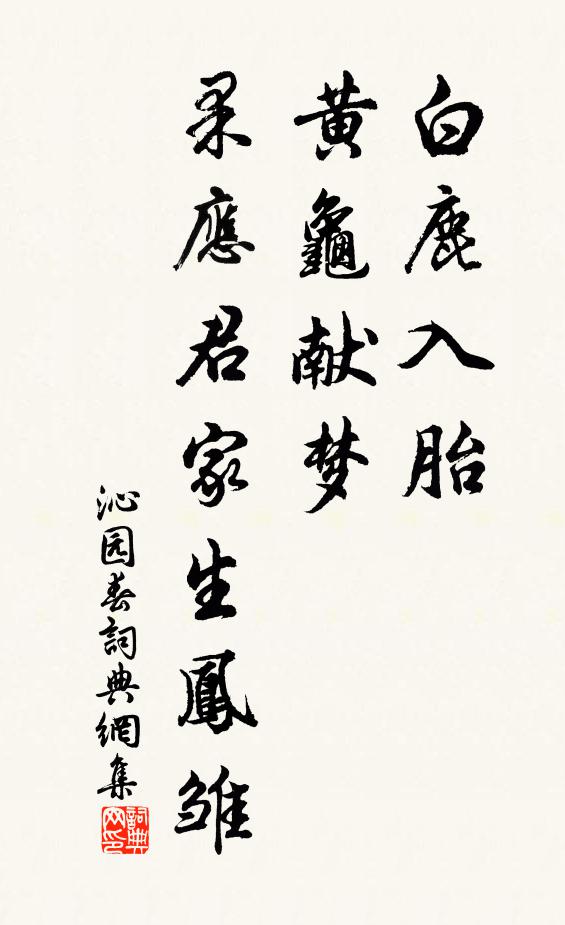 白鹿入胎
黄龜献梦
果應君家生鳳雏
沁园春詞典網集
詞典网印